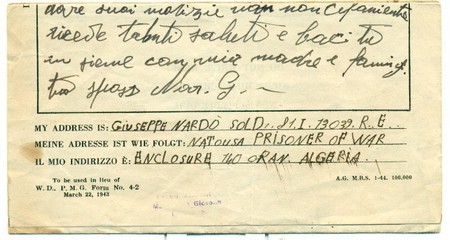 dare suoi notizie non non
ricede tanti saluti e baci tu
in sieme con mia madre e famigl.
tuo sposo Nar. G.
MY ADDRESS IS: GIUSEPPE NARDO SOLD. 81.I. 13039. R.E.
MEINE ADRESSE IST WIE FOLGT: NATOUSA PRISONER OF WAR
IL MIO INDIRIZZO È: ENCLOSURE 140 ORAN. ALGERIA.
To be used in lieu of
W. D., P. M. G. Form No. 4-2
March 22, 1943
A.G. M.R.S. 1-44. 100,000